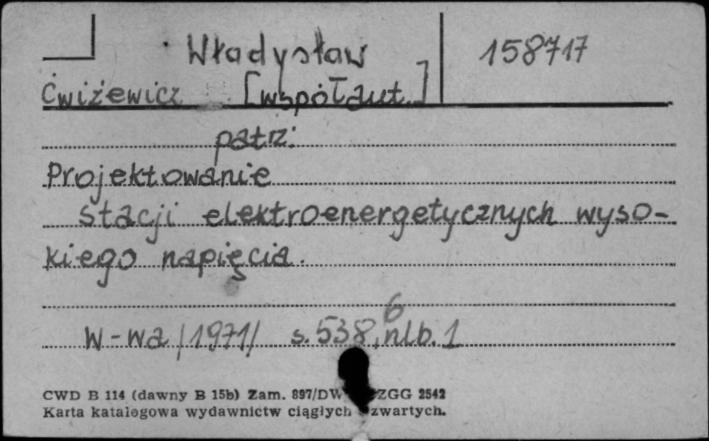 Władysław 158717
Ćwiżewicz [współaut.]
patrz:
Projektowanie
stacji elektroenergetycznych wyso-
kiego napięcia.
W-wa /1971/ s. 538, nlb. 1
6
CWD B 114 (dawny B 15b) Zam. 897/DW ZGG 2542
Karta katalogowa wydawnictw ciągłych zwartych.